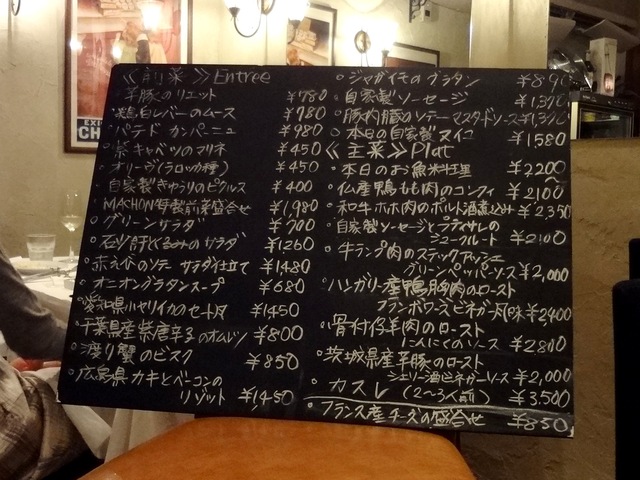 ≪前菜≫Entree
・羊豚のリエット ¥780
・鶏白レバーのムース ¥780
・パテド カンパーニュ ¥980
・紫キャベツのマリネ ¥450
・オリーヴ(ラロッカ種) ¥450
・自家製きゅうりのピクルス ¥400
・MACHON特製前菜盛合せ ¥1,980
・グリーンサラダ ¥700
・石とくるみのサラダ ¥1260
・赤えびのソテー サラダ仕立て ¥1480
・オニオングラタンスープ ¥680
・愛知県ハヤリイカのセート風 ¥1450
・千葉県産紫唐辛子のオムレツ ¥800
・渡り蟹のビスク ¥850
・広島県カキとベーコンの
リゾット ¥1,450
・ジャガイモのグラタン ¥890
・自家製ソーセージ ¥1,390
・豚内臓のソテーマスタードソース ¥1,390
・本日の自家製 ¥1580
≪主菜≫Plat
・本日のお魚料理 ¥2200〜
・仏産鴨もも肉のコンフィ ¥2100
・和牛ホホ肉のポルト酒煮込み ¥2350
・自家製ソーセージとプティサレの
シュークルート ¥2100
・牛ランプ肉のステックアッシェ
グリーンペッパーソース ¥2,000
・ハンガリー産鴨胸肉のロースト
フランボワーズビネガー風味 ¥2400
・骨付仔羊肉のロースト
にんにくのソース ¥2800
・茨城県産羊豚のロースト
シェリー酒ビネガーソース ¥2,000
・カスレ (2〜3人前) ¥3,500
・フランス産チーズの盛合せ ¥850